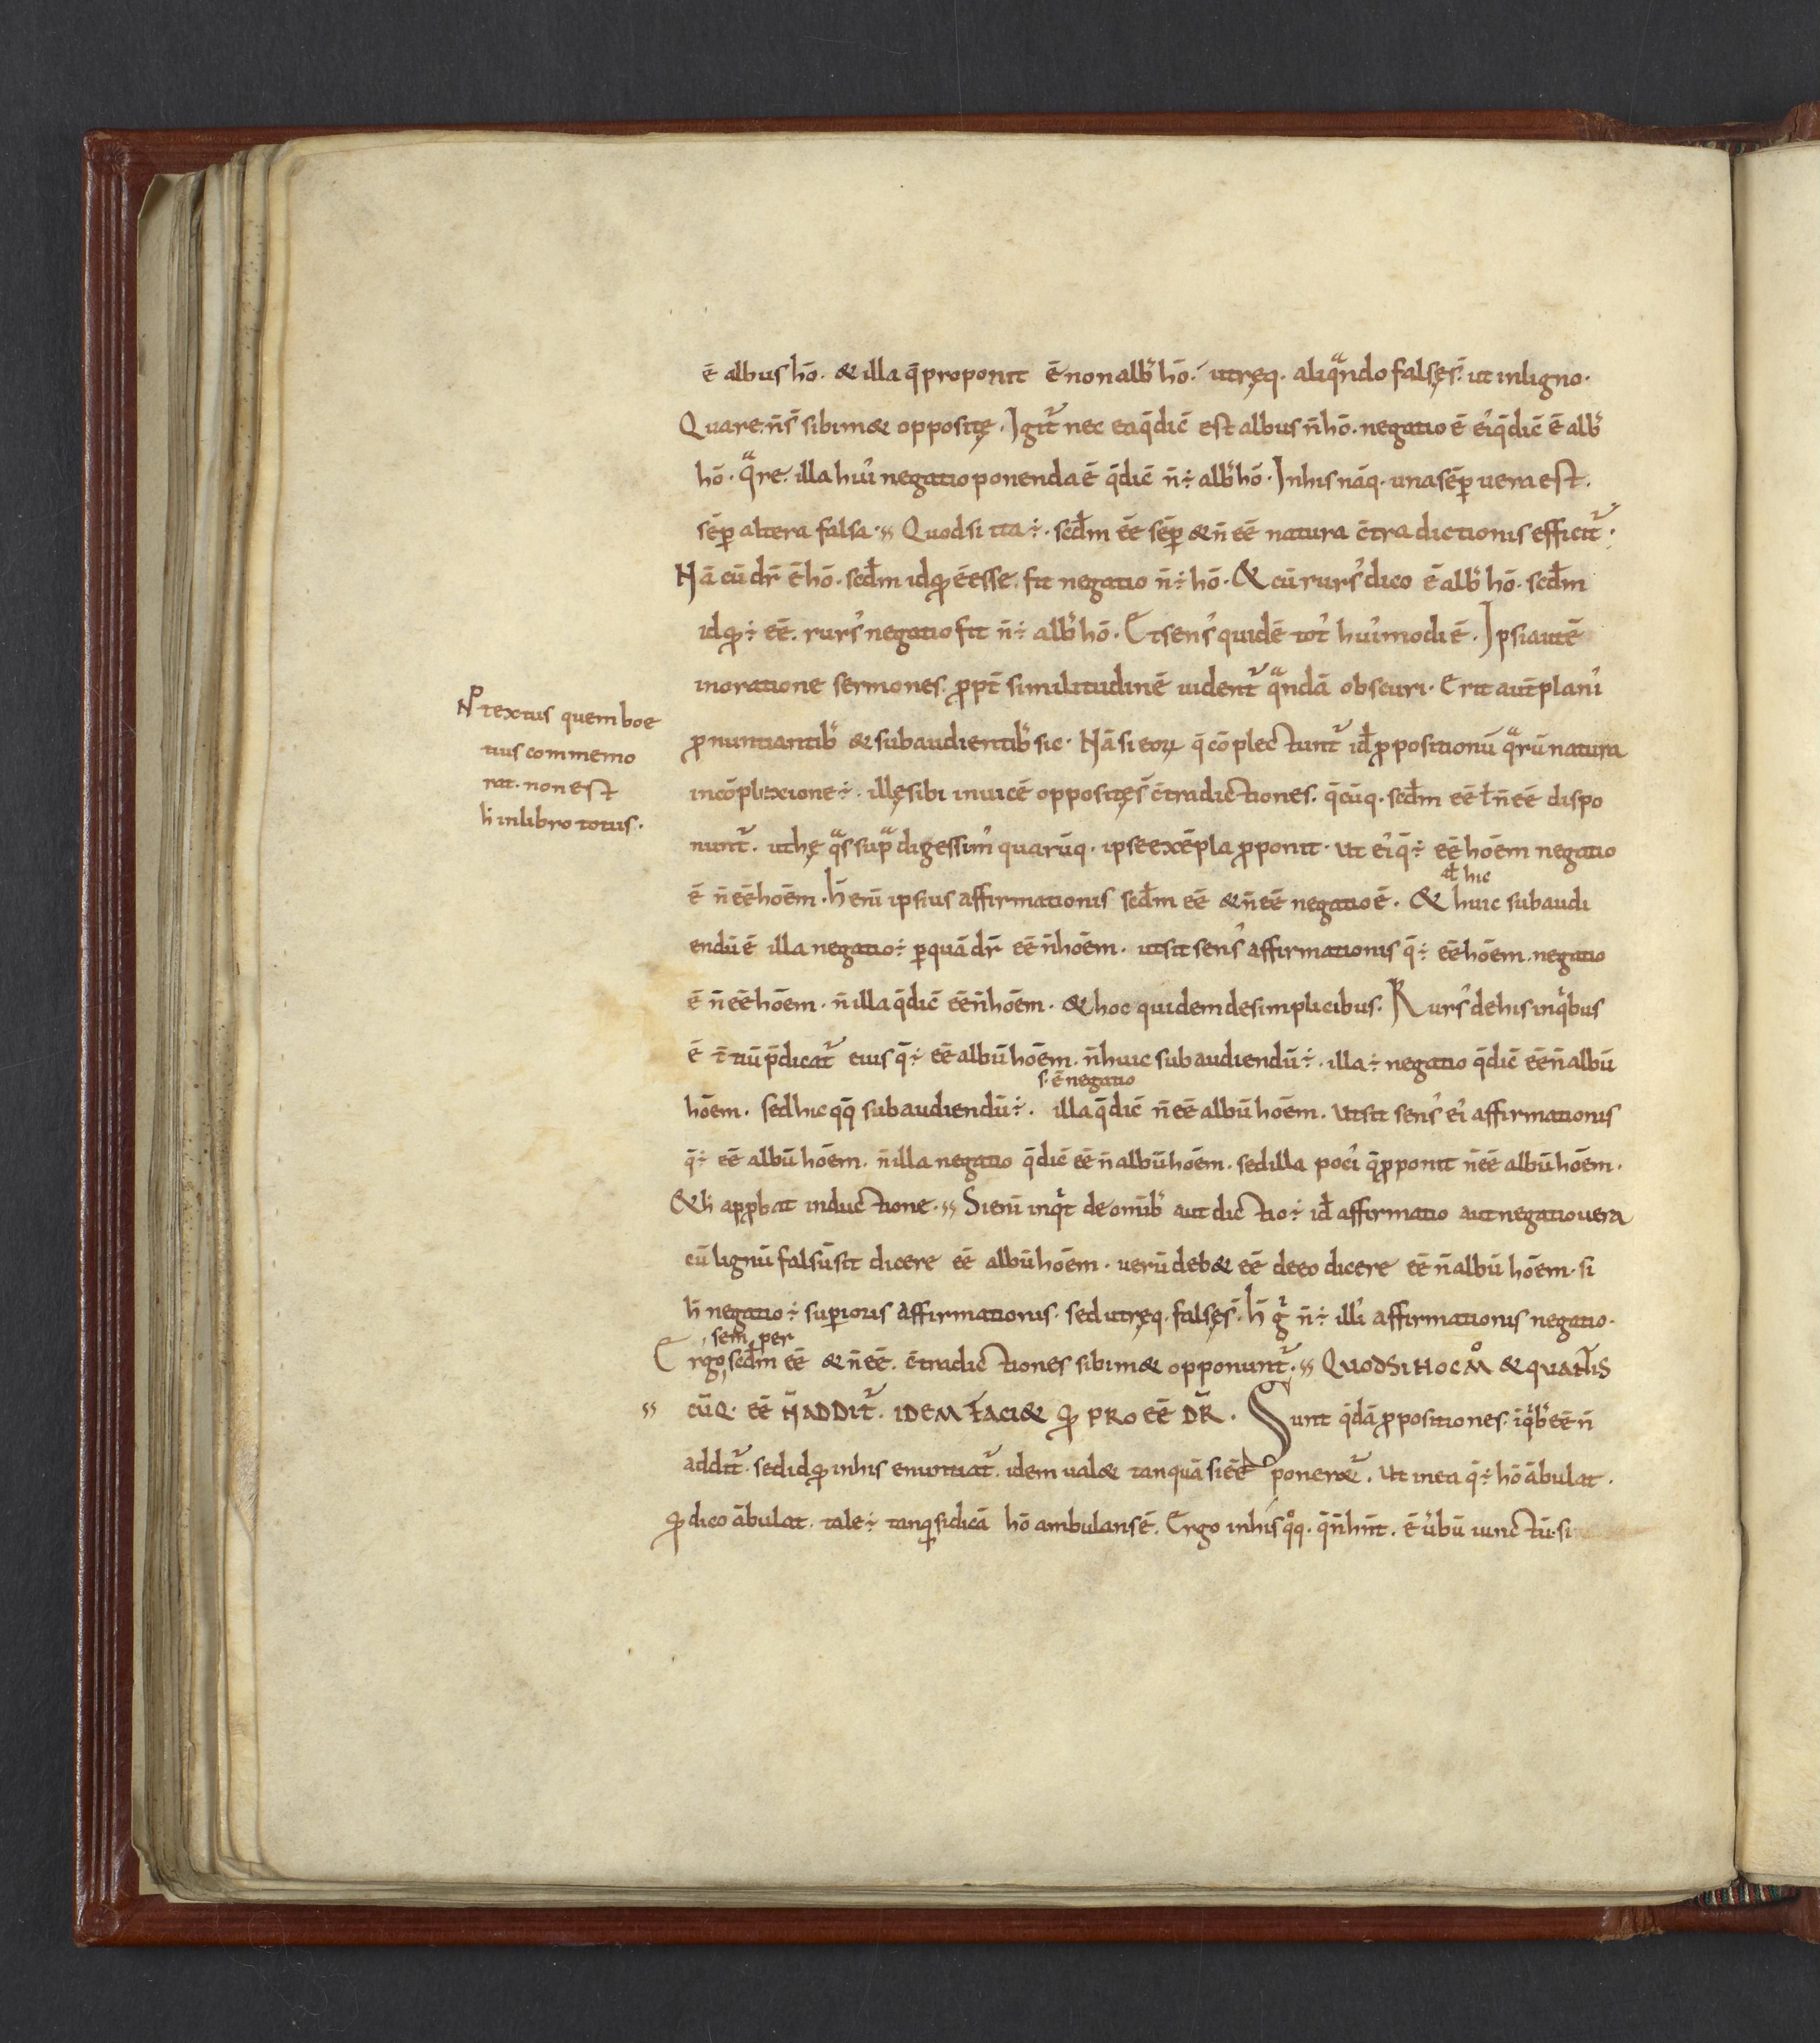 ē albus hō. & illa q̄ proponit ē non alb' hō. utręq. aliqͣndo falsę s̄. ut inligno.
Quare n̄ s̄ sibim& opposite. Igit̃ nec ea q̄ dic̄ est albus n̄ hō. negatio ē ei' q̄ dic̄ ē alb'
hō. qͣre illa hui' negatio ponenda ē q̄ dic̄ n̄ ÷ alb' hō. In his nāq. una sēꝑ uera est.
sēꝑ altera falsa. Quod si ita ÷. scd̄m ēē sēꝑ & n̄ ēē natura c̄tradictionis efficit̃.
Nā cū dr̄ ē hō. scd̄m id ꝙ ē esse. fit negatio n̄ ÷ hō. & cū rurs' dico ē alb' hō. scd̄m
id ꝙ ÷ ēē. rurs' negatio fit n̄ ÷ alb' hō. Et sens' quidē tot' hui'modi ē. Ipsi autē
in oratione sermones. ꝓpt̄ similitudinē uident̃ qͣndā obscuri. Erit aut̄ plani'
ꝓnuntiantib' & subaudientib' sic. Nā si eoꝝ q̄ cōplectunt̃ id̄ ꝓpositionū qͣrū natura
in cōplexione ÷. illę sibi inuicē oppositę s̄ c̄tradictiones. q̄cūq. scd̄m ēē ł n̄ ēē dispo
nunt̃. ut hę qͣs supͣ digessim' quarūq. ipse exēpla ꝓponit. Ut ei' q̄ ÷ ēē hōem negatio
ē n̄ ēē hōem. h̄ eni ipsius affirmationis scd̄m ēē & n̄ ēē negatio ē. & huic subaudi
hic
endū ē illa negatio ÷ ꝑ quā dr̄ ēē n̄ hōem. ut sit sens' affirmationis q̄ ÷ ēē hōem. negatio
ē n̄ ēē hōem. n̄ illa q̄ dic̄ ēē n̄ hōem. & hoc quidem de simplicibus. Rurs' de his in qͥbus
ē t̄tiū p̄dicat̃ eius q̄ ÷ ēē albū hōem. n̄ huic subaudiendū ÷. illa ÷ negatio q̄ dic̄ ēē n̄ albū
s. ē negatio
hōem. sed hic qq̄ subaudiendū ÷. illa q̄ dic̄ n̄ ēē albū hōem. Ut sit sens' ei' affirmationis
q̄ ÷ ēē albū hōem. n̄ illa negatio q̄ dic̄ ēē n̄ albū hōem. sed illa poci' q̄ ꝓponit n̄ ēē albū hōem.
& h̄ apꝓbat inductione. Si eni inqͥt de omib' aut dictio ÷ id̄ affirmatio aut negatio uera
cū lignū falsū sit dicere ēē albū hōem. uerū deb& ēē de eo dicere ēē n̄ albū hōem. si
h̄ negatio ÷ suꝑioris affirmationis. sed utręq. falsę s̄. h̄ gͥ n̄ ÷ illi' affirmationis negatio.
semper
Ergo scd̄m ēē & n̄ ēē. c̄tradictiones sibim& opponunt̃. QUODSI HOC Mͦ & QUANTIS
CŪQ. ĒĒ N̄ ADDIT̃. IDEM FACI& ꝙ PRO ĒĒ DR̄. Sunt q̄dā ꝓpositiones. ī qͥb' ēē n̄
addit̃. sed id ꝙ in his enuntiat̃. idem ual& tanquā si ēē poner&̃. Ut in ea q̄ ÷ hō ābulat.
ꝙ dico ābulat. tale ÷ tanq si dicā hō ambulans ē. Ergo in his qͦq. q̄ n̄ hn̄t. ē u̓bū iunctū. si
textus quem boe
tius commemo
rat. non est
h̄ in libro totus.